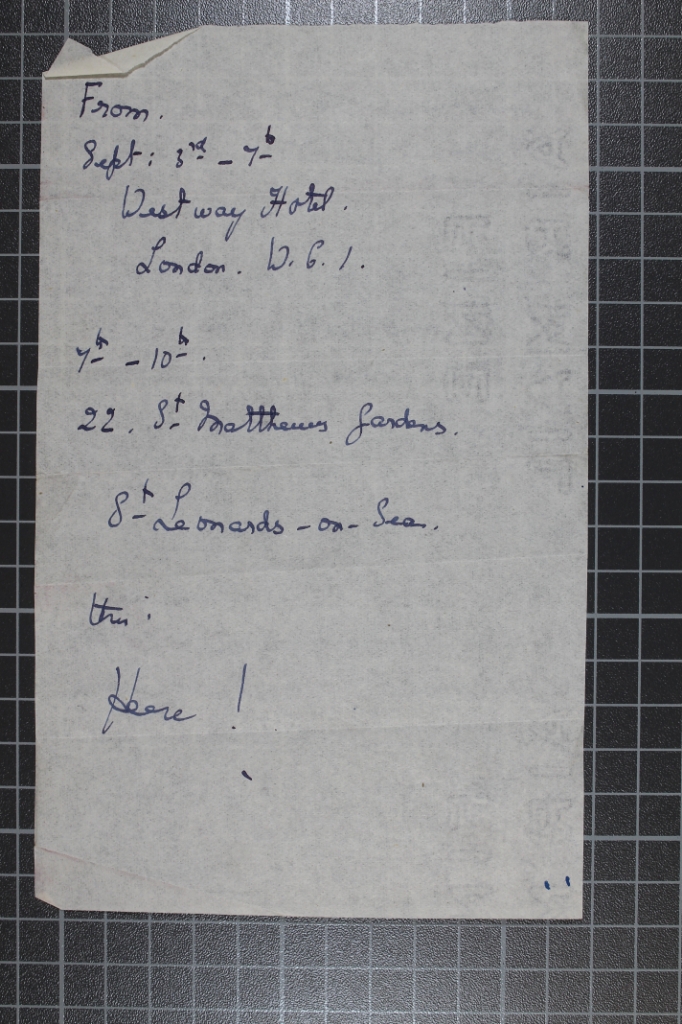 From.
Sept: 3rd - 7th
Westway Hotel.
London. W.C.1.
7th - 10th.
22. St Matthews Gardens.
St Leonards-on-Sea.
then:
Home!